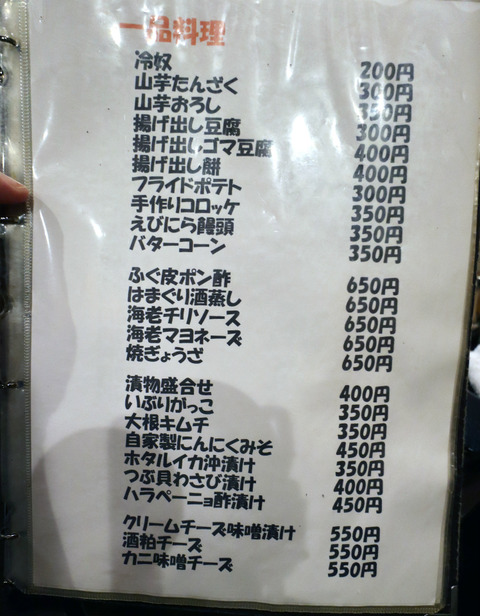 一品料理
冷奴 200円
山芋たんざく 300円
山芋おろし 350円
揚げ出し豆腐 300円
揚げ出しゴマ豆腐 400円
揚げ出し餅 400円
フライドポテト 300円
手作りコロッケ 350円
えびにら饅頭 350円
バターコーン 350円
ふぐ皮ポン酢 650円
はまぐり酒蒸し 650円
海老チリソース 650円
海老マヨネーズ 650円
焼ぎょうざ 650円
漬物盛合せ 400円
いぶりがっこ 350円
大根キムチ 350円
自家製にんにくみそ 450円
ホタルイカ沖漬け 350円
つぶ貝わさび漬け 400円
ハラペーニョ酢漬け 450円
クリームチーズ味噌漬け 550円
酒粕チーズ 550円
カニ味噌チーズ 550円